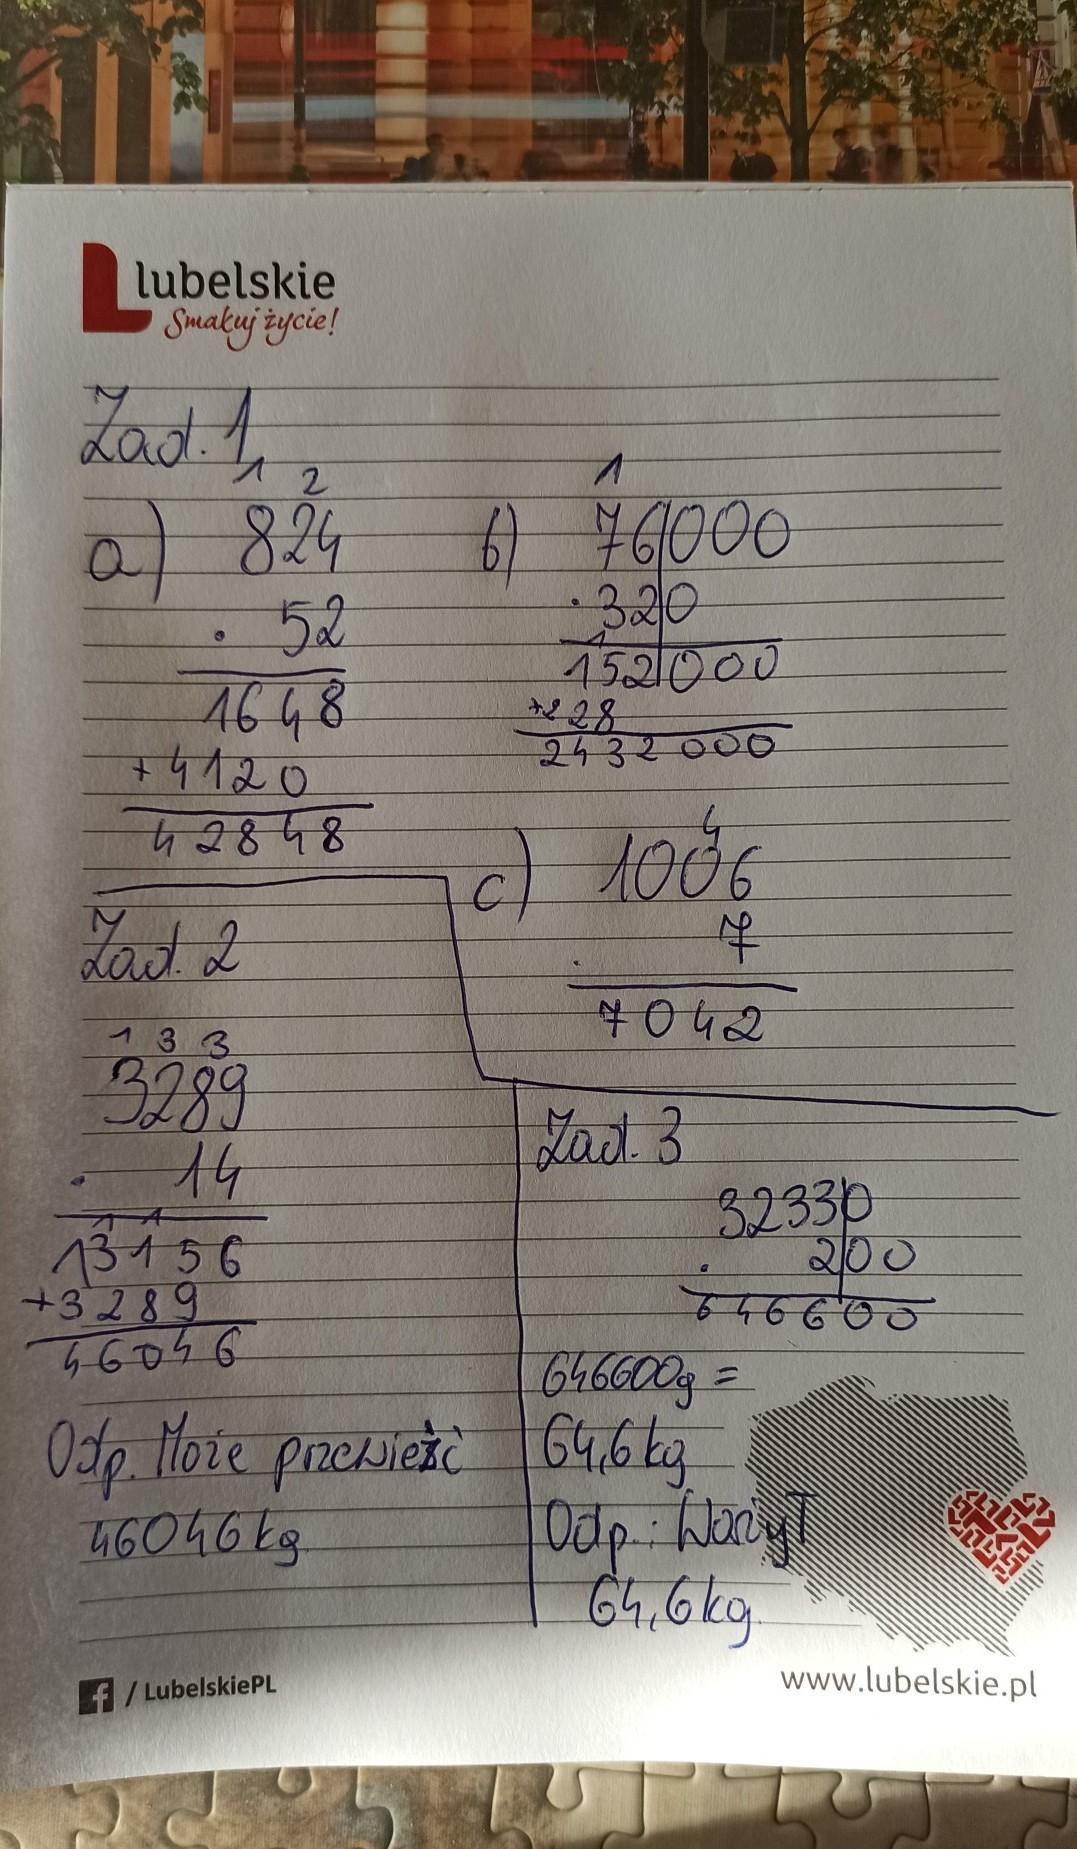 lubelskie
Smakuj życie!
Zad. 1
1 2
a) 824
· 52
1648
+4120
42848
1
b) 76000
· 320
1
152000
+228
2432000
4
c) 1006
7
·
7042
Zad. 2
1 3 3
3289
· 14
1 1
13156
+3289
46046
Odp. Może przewieźć
46046kg
Zad. 3
32330
· 200
646600
646600g =
64,6kg
Odp.: Ważył
64,6kg
/ LubelskiePL
www.lubelskie.pl